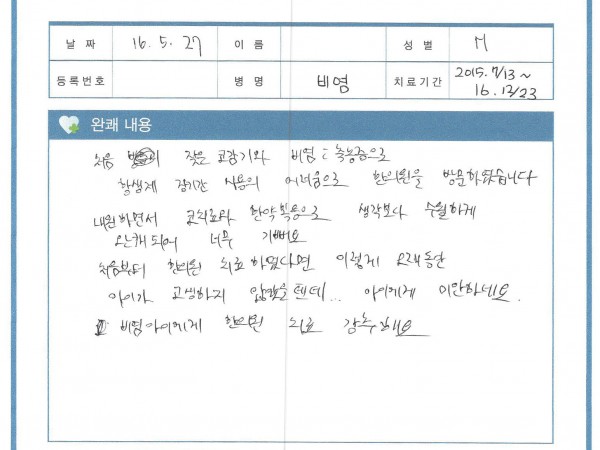 날 짜 16. 5. 27 이 름 성 별 M
등록번호 병 명 비염 치료기간 2015. 7/13 ~
16. 12/23
완쾌 내용
처음 잦은 코감기와 비염 축농증으로
항생제 장기간 사용의 어려움으로 한의원을 방문하였습니다
내원하면서 코치료와 한약복용으로 생각보다 수월하게
완쾌되어 너무 기뻐요
처음부터 한의원 치료하였다면 이렇게 오래동안
아이가 고생하지 않았을텐데... 아이에게 미안하네요.
비염아이에게 한의원 치료 강추해요